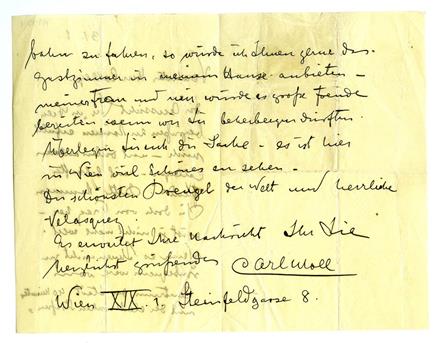 bahn zu fahren, so würde ich Ihnen gerne das
Gastzimmer in meinem Hause anbieten –
meiner Frau und mir würde es große Freude
bereiten wenn wir Sie beherbergen dürften.
Überlegen Sie sich die Sache – es ist hier
in Wien viel Schönes zu sehen –
die schönsten Breugel der Welt und herrliche
Velasquez.
Es erwartet Ihre Nachricht Ihr Sie
herzlichst grüßender Carl Moll
Wien XIX. 1. Steinfeldgasse 8.